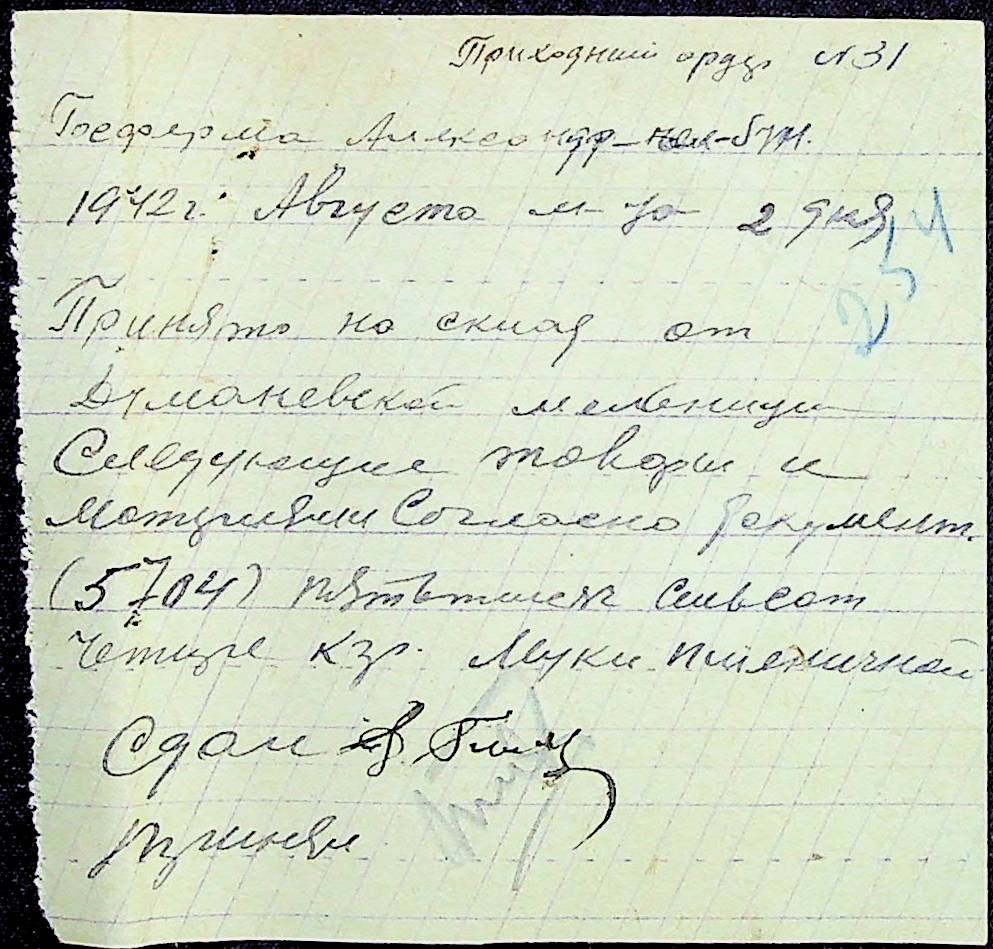 Приходний ордер №31
Госферма Александр
1942 г. Августа м-ца 2 дня
234
Принято на склад от
Думаневской мельници
Следующие товары и
Материяли Согласно документ.
(5704) пятьтисяч симьсот
Четыре кгр. Муки пшеничной
Сдал
Принял